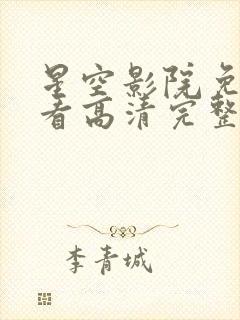 星空影院免
看高清完整
李青城